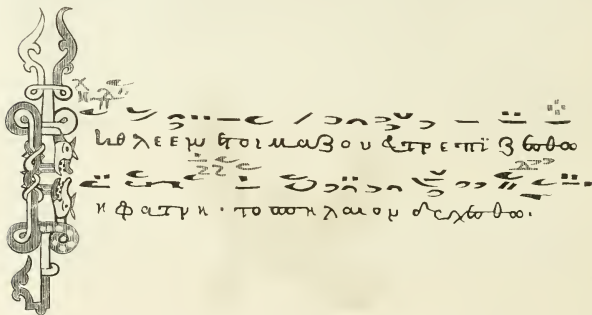 Βηθλεεμ ετοιμαζου ευτρεπϊζεσθω
η φατνη · το σπηλαιον δεχεσθω ·